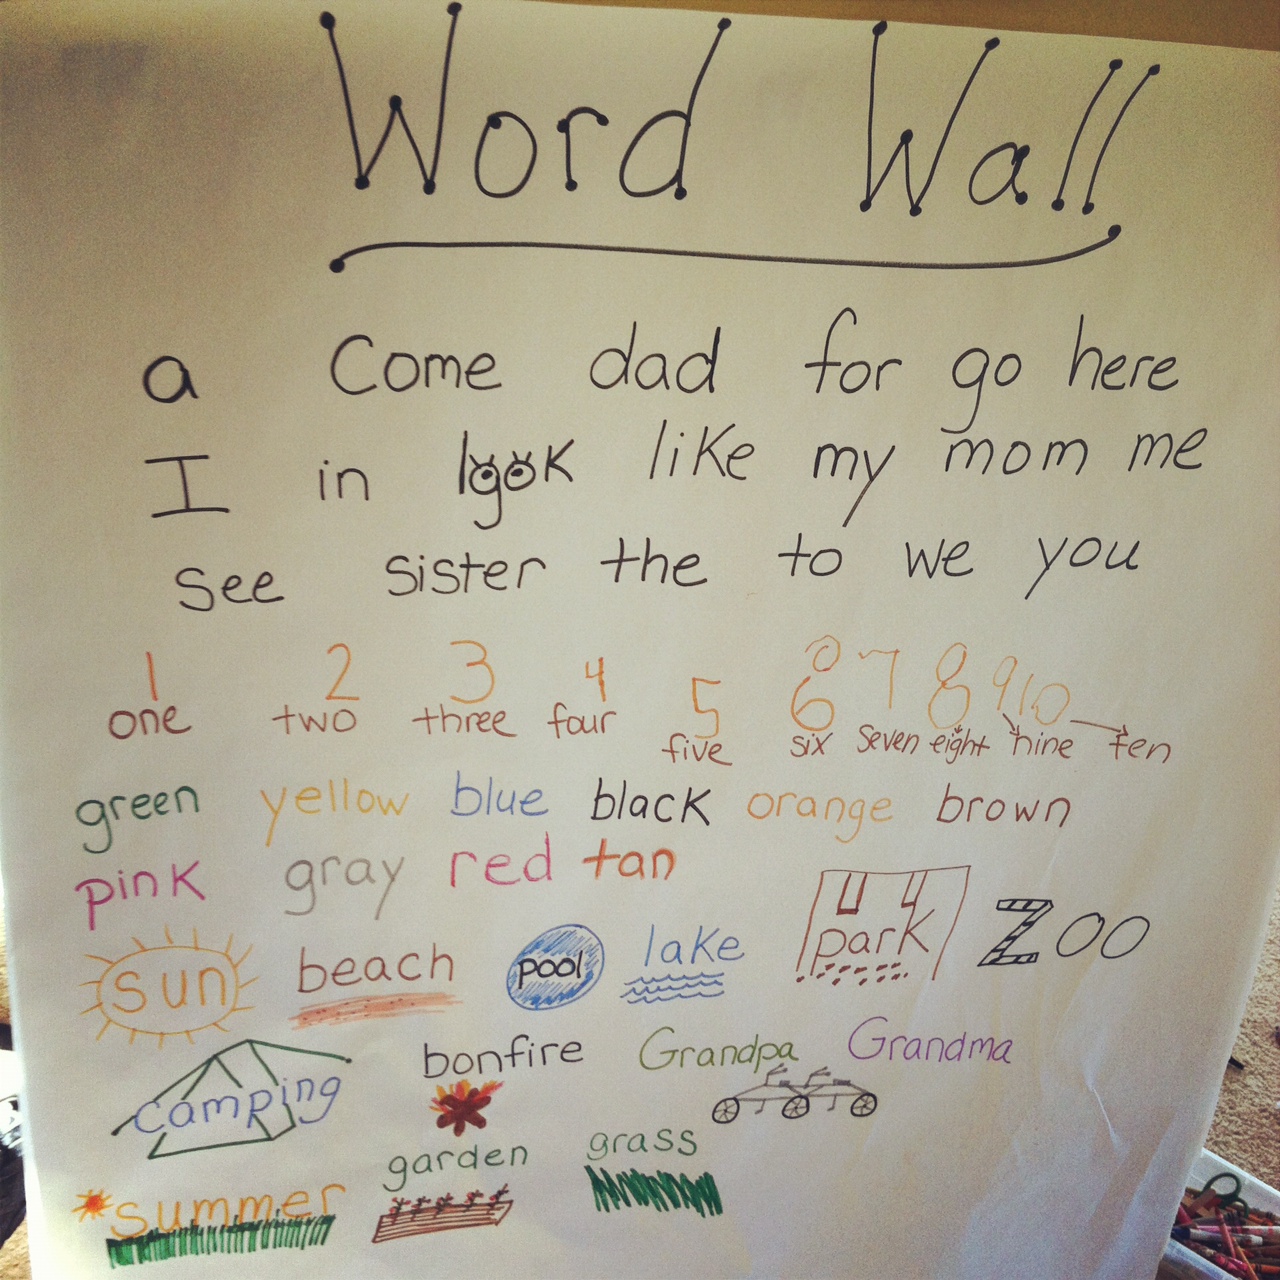 Word Wall
a Come dad for go here
I in look like my mom me
see sister the to we you
1 2 3 4 5 6 7 8 9 10
one two three four five six seven eight nine ten
green yellow blue black orange brown
pink gray red tan
sun beach pool lake park Zoo
camping bonfire Grandpa Grandma
summer garden grass